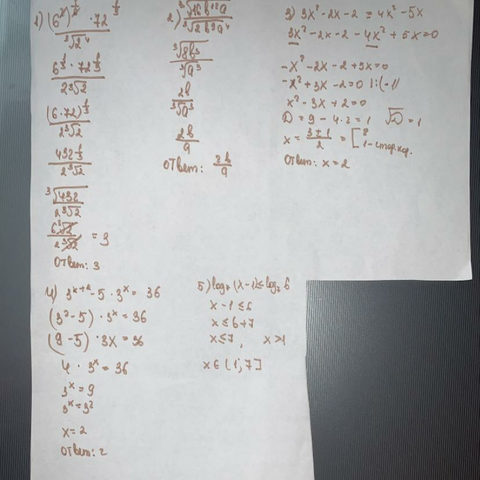 1) (6²)^(1/6) · 72^(1/3) / ³√2⁴
6^(1/3) · 72^(1/3) / 2³√2
(6·72)^(1/3) / 2³√2
432^(1/3) / 2³√2
³√432 / 2³√2
6³√2 / 2³√2 = 3
Ответ: 3
2) ³√16b¹²a / ³√2b⁹a⁴
³√8b³ / ³√a³
2b / ³√a³
2b / a
Ответ: 2b/a
3) 3x²-2x-2 = 4x²-5x
3x²-2x-2-4x²+5x=0
-x²-2x-2+5x=0
-x²+3x-2=0 |:(-1)
x²-3x+2=0
D=9-4·2=1 √D=1
x = 3±1 / 2 = [2
1-стор.кор.
Ответ: x=2
4) 3^(x+2) - 5·3^x = 36
(3²-5)·3^x = 36
(9-5)·3x=36
4·3^x=36
3^x=9
3^x=3²
x=2
Ответ: 2
5) log₇(x-1)≤log₇6
x-1≤6
x≤6+7
x≤7, x>1
x∈(1;7]